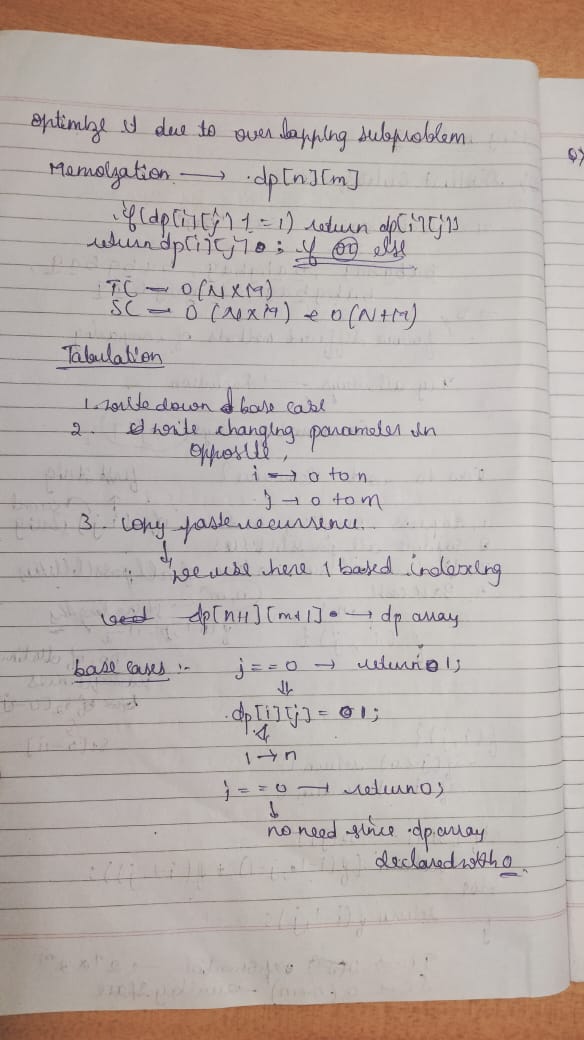 optimize it due to overlapping subproblem
Memoization → dp[n][m]
if(dp[i][j] != -1) return dp[i][j];
return dp[i][j] ; if or else
TC – O(N×M)
SC – O(N×M) + O(N+M)
Tabulation
1. write down base case
2. write changing parameter in
opposite,
i → 0 to n
j → 0 to m
3. Copy paste recurrence.
↓
we use here 1 based indexing
dp[n+1][m+1] → dp array
base cases :- j==0 → return 1;
⇓
dp[i][j] = 1;
1 → n
j==0 → return 0;
↓
no need since dp array
declared with 0.
Q>